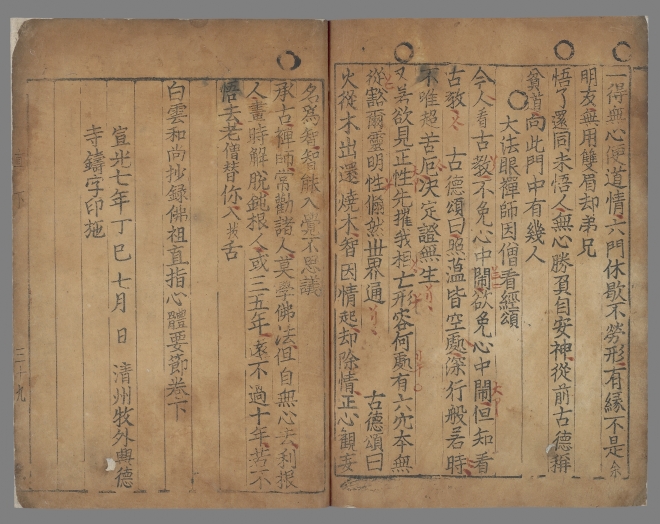 一得無心便道情六門休歇不勞形有緣不是余
朋友無用雙眉却弟兄
悟了還同未悟人無心勝負自安神從前古德稱
貧道向此門中有幾人
大法眼禪師因僧看經頌
今人看古教不免心中鬧欲免心中鬧但知看
古教 古德頌曰照薀皆空處深行般若時
不唯超苦厄決定證無生
又若欲見正性先摧我相亡形容何處有六宂本無
從豁爾靈明性翛然世界通 古德頌曰
火從木出還燒木智因情起却除情正心觀妄
名爲智智能入覺不思議
承古禪師常勸諸人莫學佛法但自無心去利根
人晝時解脫鈍根人或三五年遠不過十年若不
悟去老僧替你入拔舌
白雲和尚抄錄佛祖直指心體要節卷下
宣光七年丁巳七月 日 清州牧外興德
寺鑄字印施
下
三十九